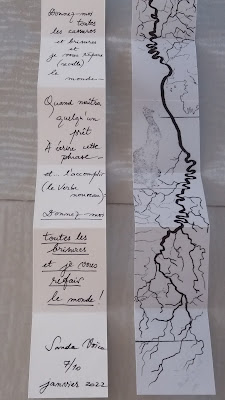 Donnez-moi
toutes
les cassures
et brisures
et
je vous répare
(recolle)
le monde—
Quand naîtra
quelqu'un
prêt
A écrire cette
phrase—
et... l'accomplir
(le Verbe
nouveau)
Donnez-moi
toutes les
brisures
et je vous
refais
le monde !
Sanda Voïca
7/10
janvier 2022